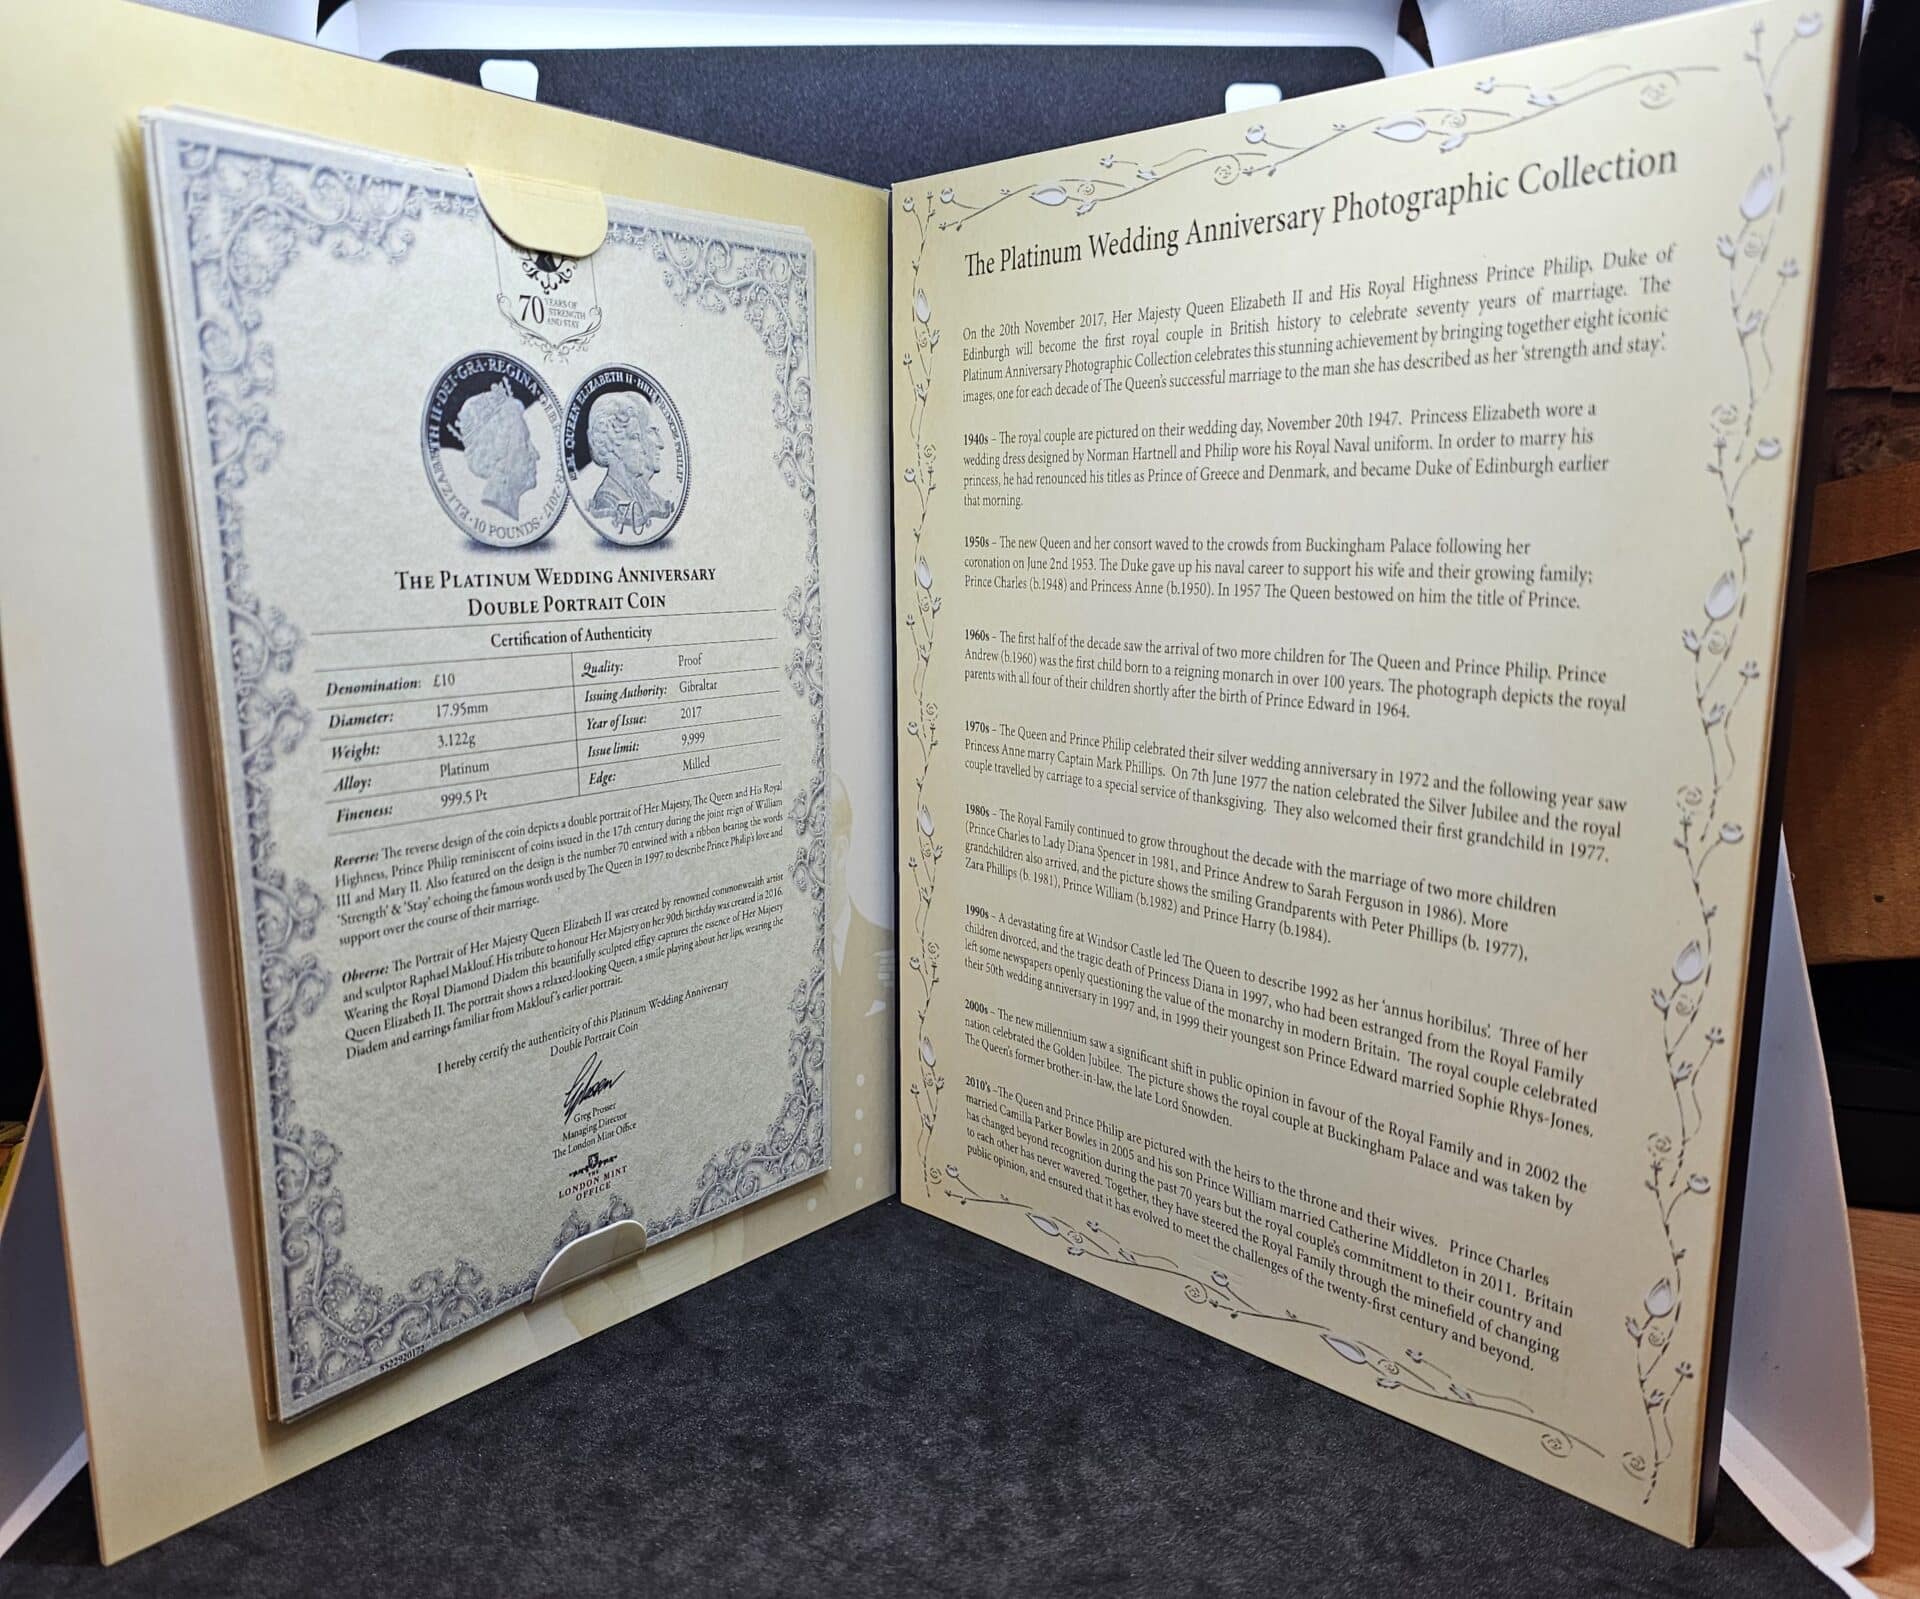 70 YEARS OF
STRENGTH
AND STAY
ELIZABETH II · DEI · GRA · REGINA · 2017
· 10 POUNDS ·
H.M. QUEEN ELIZABETH II · H.R.H. PRINCE PHILIP
70
THE PLATINUM WEDDING ANNIVERSARY
DOUBLE PORTRAIT COIN
Certification of Authenticity
Denomination: £10
Diameter: 17.95mm
Weight: 3.122g
Alloy: Platinum
Fineness: 999.5 Pt
Quality: Proof
Issuing Authority: Gibraltar
Year of Issue: 2017
Issue limit: 9,999
Edge: Milled
Reverse: The reverse design of the coin depicts a double portrait of Her Majesty, The Queen and His Royal
Highness, Prince Philip reminiscent of coins issued in the 17th century during the joint reign of William
III and Mary II. Also featured on the design is the number 70 entwined with a ribbon bearing the words
'Strength' & 'Stay' echoing the famous words used by The Queen in 1997 to describe Prince Philip's love and
support over the course of their marriage.
Obverse: The Portrait of Her Majesty Queen Elizabeth II was created by renowned commonwealth artist
and sculptor Raphael Maklouf. His tribute to honour Her Majesty on her 90th birthday was created in 2016.
Wearing the Royal Diamond Diadem this beautifully sculpted effigy captures the essence of Her Majesty
Queen Elizabeth II. The portrait shows a relaxed-looking Queen, a smile playing about her lips, wearing the
Diadem and earrings familiar from Maklouf's earlier portrait.
I hereby certify the authenticity of this Platinum Wedding Anniversary
Double Portrait Coin
Greg Prosser
Managing Director
The London Mint Office
THE
LONDON MINT
OFFICE
8522920172
The Platinum Wedding Anniversary Photographic Collection
On the 20th November 2017, Her Majesty Queen Elizabeth II and His Royal Highness Prince Philip, Duke of
Edinburgh will become the first royal couple in British history to celebrate seventy years of marriage. The
Platinum Anniversary Photographic Collection celebrates this stunning achievement by bringing together eight iconic
images, one for each decade of The Queen's successful marriage to the man she has described as her 'strength and stay'.
1940s – The royal couple are pictured on their wedding day, November 20th 1947. Princess Elizabeth wore a
wedding dress designed by Norman Hartnell and Philip wore his Royal Naval uniform. In order to marry his
princess, he had renounced his titles as Prince of Greece and Denmark, and became Duke of Edinburgh earlier
that morning.
1950s – The new Queen and her consort waved to the crowds from Buckingham Palace following her
coronation on June 2nd 1953. The Duke gave up his naval career to support his wife and their growing family;
Prince Charles (b.1948) and Princess Anne (b.1950). In 1957 The Queen bestowed on him the title of Prince.
1960s – The first half of the decade saw the arrival of two more children for The Queen and Prince Philip. Prince
Andrew (b.1960) was the first child born to a reigning monarch in over 100 years. The photograph depicts the royal
parents with all four of their children shortly after the birth of Prince Edward in 1964.
1970s – The Queen and Prince Philip celebrated their silver wedding anniversary in 1972 and the following year saw
Princess Anne marry Captain Mark Phillips. On 7th June 1977 the nation celebrated the Silver Jubilee and the royal
couple travelled by carriage to a special service of thanksgiving. They also welcomed their first grandchild in 1977.
1980s – The Royal Family continued to grow throughout the decade with the marriage of two more children
(Prince Charles to Lady Diana Spencer in 1981, and Prince Andrew to Sarah Ferguson in 1986). More
grandchildren also arrived, and the picture shows the smiling Grandparents with Peter Phillips (b. 1977),
Zara Phillips (b. 1981), Prince William (b.1982) and Prince Harry (b.1984).
1990s – A devastating fire at Windsor Castle led The Queen to describe 1992 as her 'annus horibilus'. Three of her
children divorced, and the tragic death of Princess Diana in 1997, who had been estranged from the Royal Family
left some newspapers openly questioning the value of the monarchy in modern Britain. The royal couple celebrated
their 50th wedding anniversary in 1997 and, in 1999 their youngest son Prince Edward married Sophie Rhys-Jones.
2000s – The new millennium saw a significant shift in public opinion in favour of the Royal Family and in 2002 the
nation celebrated the Golden Jubilee. The picture shows the royal couple at Buckingham Palace and was taken by
The Queen's former brother-in-law, the late Lord Snowden.
2010's –The Queen and Prince Philip are pictured with the heirs to the throne and their wives. Prince Charles
married Camilla Parker Bowles in 2005 and his son Prince William married Catherine Middleton in 2011. Britain
has changed beyond recognition during the past 70 years but the royal couple's commitment to their country and
to each other has never wavered. Together, they have steered the Royal Family through the minefield of changing
public opinion, and ensured that it has evolved to meet the challenges of the twenty-first century and beyond.